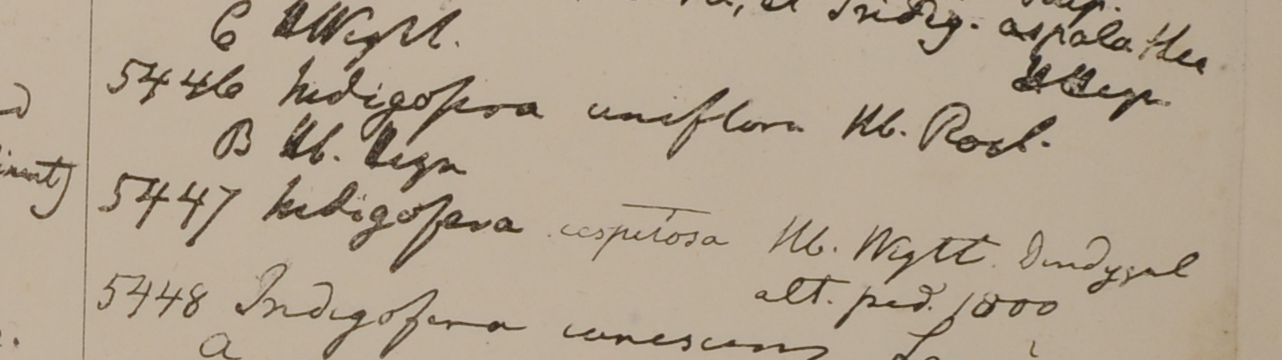 Indig. aspalathea
C HWight.
Hb. Heyn
5446 Indigofera uniflora Hb. Roxb.
B Hb. Heyn
5447 Indigofera cespitosa Hb. Wight. Dindygul
alt. ped. 1800
5448 Indigofera canescens
a